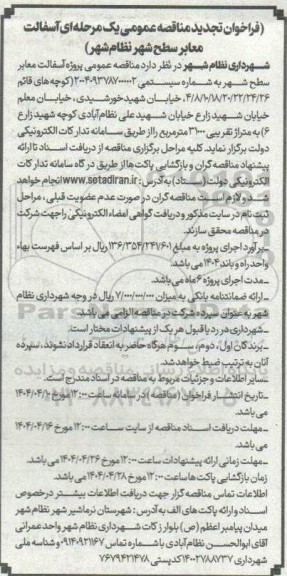 (فراخوان تجدید مناقصه عمومی یک مرحله ای آسفالت
معابر سطح شهر نظام شهر)
شهرداری نظام شهر در نظر دارد مناقصه عمومی پروژه آسفالت معابر
سطح شهر به شماره سیستمی ۲۰۰۴۰۹۳۷۸۷۰۰۰۰۰۲ (کوچه های قائم
۴/۸/۱۰/۱۸/۲۰/۲۲/۲۴/۲۶، خیابان شهید خورشیدی، خیابان معلم
خیابان شهید زارع خیابان شهید علی نظام آبادی کوچه شهید زارع
۶) به متراژ تقریبی ۳۱۰۰۰ مترمربع را از طریق سامانه تدارکات الکترونیکی
دولت برگزار نماید. کلیه مراحل برگزاری مناقصه از دریافت اسناد تا ارائه
پیشنهاد مناقصه گران و بازگشایی پاکت ها از طریق درگاه سامانه تدارکات
الکترونیکی دولت (ستاد) به آدرس: www.setadiran.ir انجام خواهد
شد و لازم است مناقصه گران در صورت عدم عضویت قبلی، مراحل
ثبت نام در سایت مذکور و دریافت گواهی امضاء الکترونیکی را جهت شرکت
در مناقصه محقق سازند.
-برآورد اجرای پروژه به مبلغ ۱۳۶/۳۵۴/۲۴۷/۶۰۱ ریال بر اساس فهرست بهاء
واحد راه و باند ۱۴۰۴ می باشد.
-مدت اجرای پروژه ۶ ماه می باشد.
-ارائه ضمانتنامه بانکی به میزان ۷/۰۰۰/۰۰۰/۰۰۰ ریال در وجه شهرداری نظام
شهر به عنوان سپرده شرکت در مناقصه الزامی می باشد.
-شهرداری در رد یا قبول هر یک از پیشنهادات مختار است.
-برندگان اول، دوم، سوم هرگاه حاضر به انعقاد قرارداد نشوند، سپرده
آنان به ترتیب ضبط خواهد شد.
سایر اطلاعات و جزئیات مربوط به مناقصه در اسناد مندرج است.
-تاریخ انتشار فراخوان (مناقصه) در سامانه ساعت ۱۲:۰۰ مورخ ۱۴۰۴/۰۴/۱۰
می باشد.
-مهلت دریافت اسناد مناقصه از سایت ساعت ۱۲:۰۰ مورخ ۱۴۰۴/۰۴/۱۶
می باشد.
-مهلت زمانی ارائه پیشنهادات ساعت ۱۲:۰۰ مورخ ۱۴۰۴/۰۴/۲۶ می باشد.
زمان بازگشایی پاکت ها ساعت ۱۲:۰۰ مورخ ۱۴۰۴/۰۴/۲۸ می باشد.
اطلاعات تماس مناقصه گزار جهت دریافت اطلاعات بیشتر در خصوص
اسناد و ارائه پاکت های الف به آدرس: شهرستان نرماشیر شهر نظام شهر
میدان پیامبر اعظم (ص) بلوار زکات شهرداری نظام شهر واحد عمرانی
آقای ابوالحسن نظام آبادی با شماره تماس ۰۹۱۴۰۹۲۱۱۶۷ و شناسه ملی
شهرداری ۱۴۰۰۲۷۸۸۷۳۷ کدپستی ۷۶۷۹۴۲۱۴۷۸